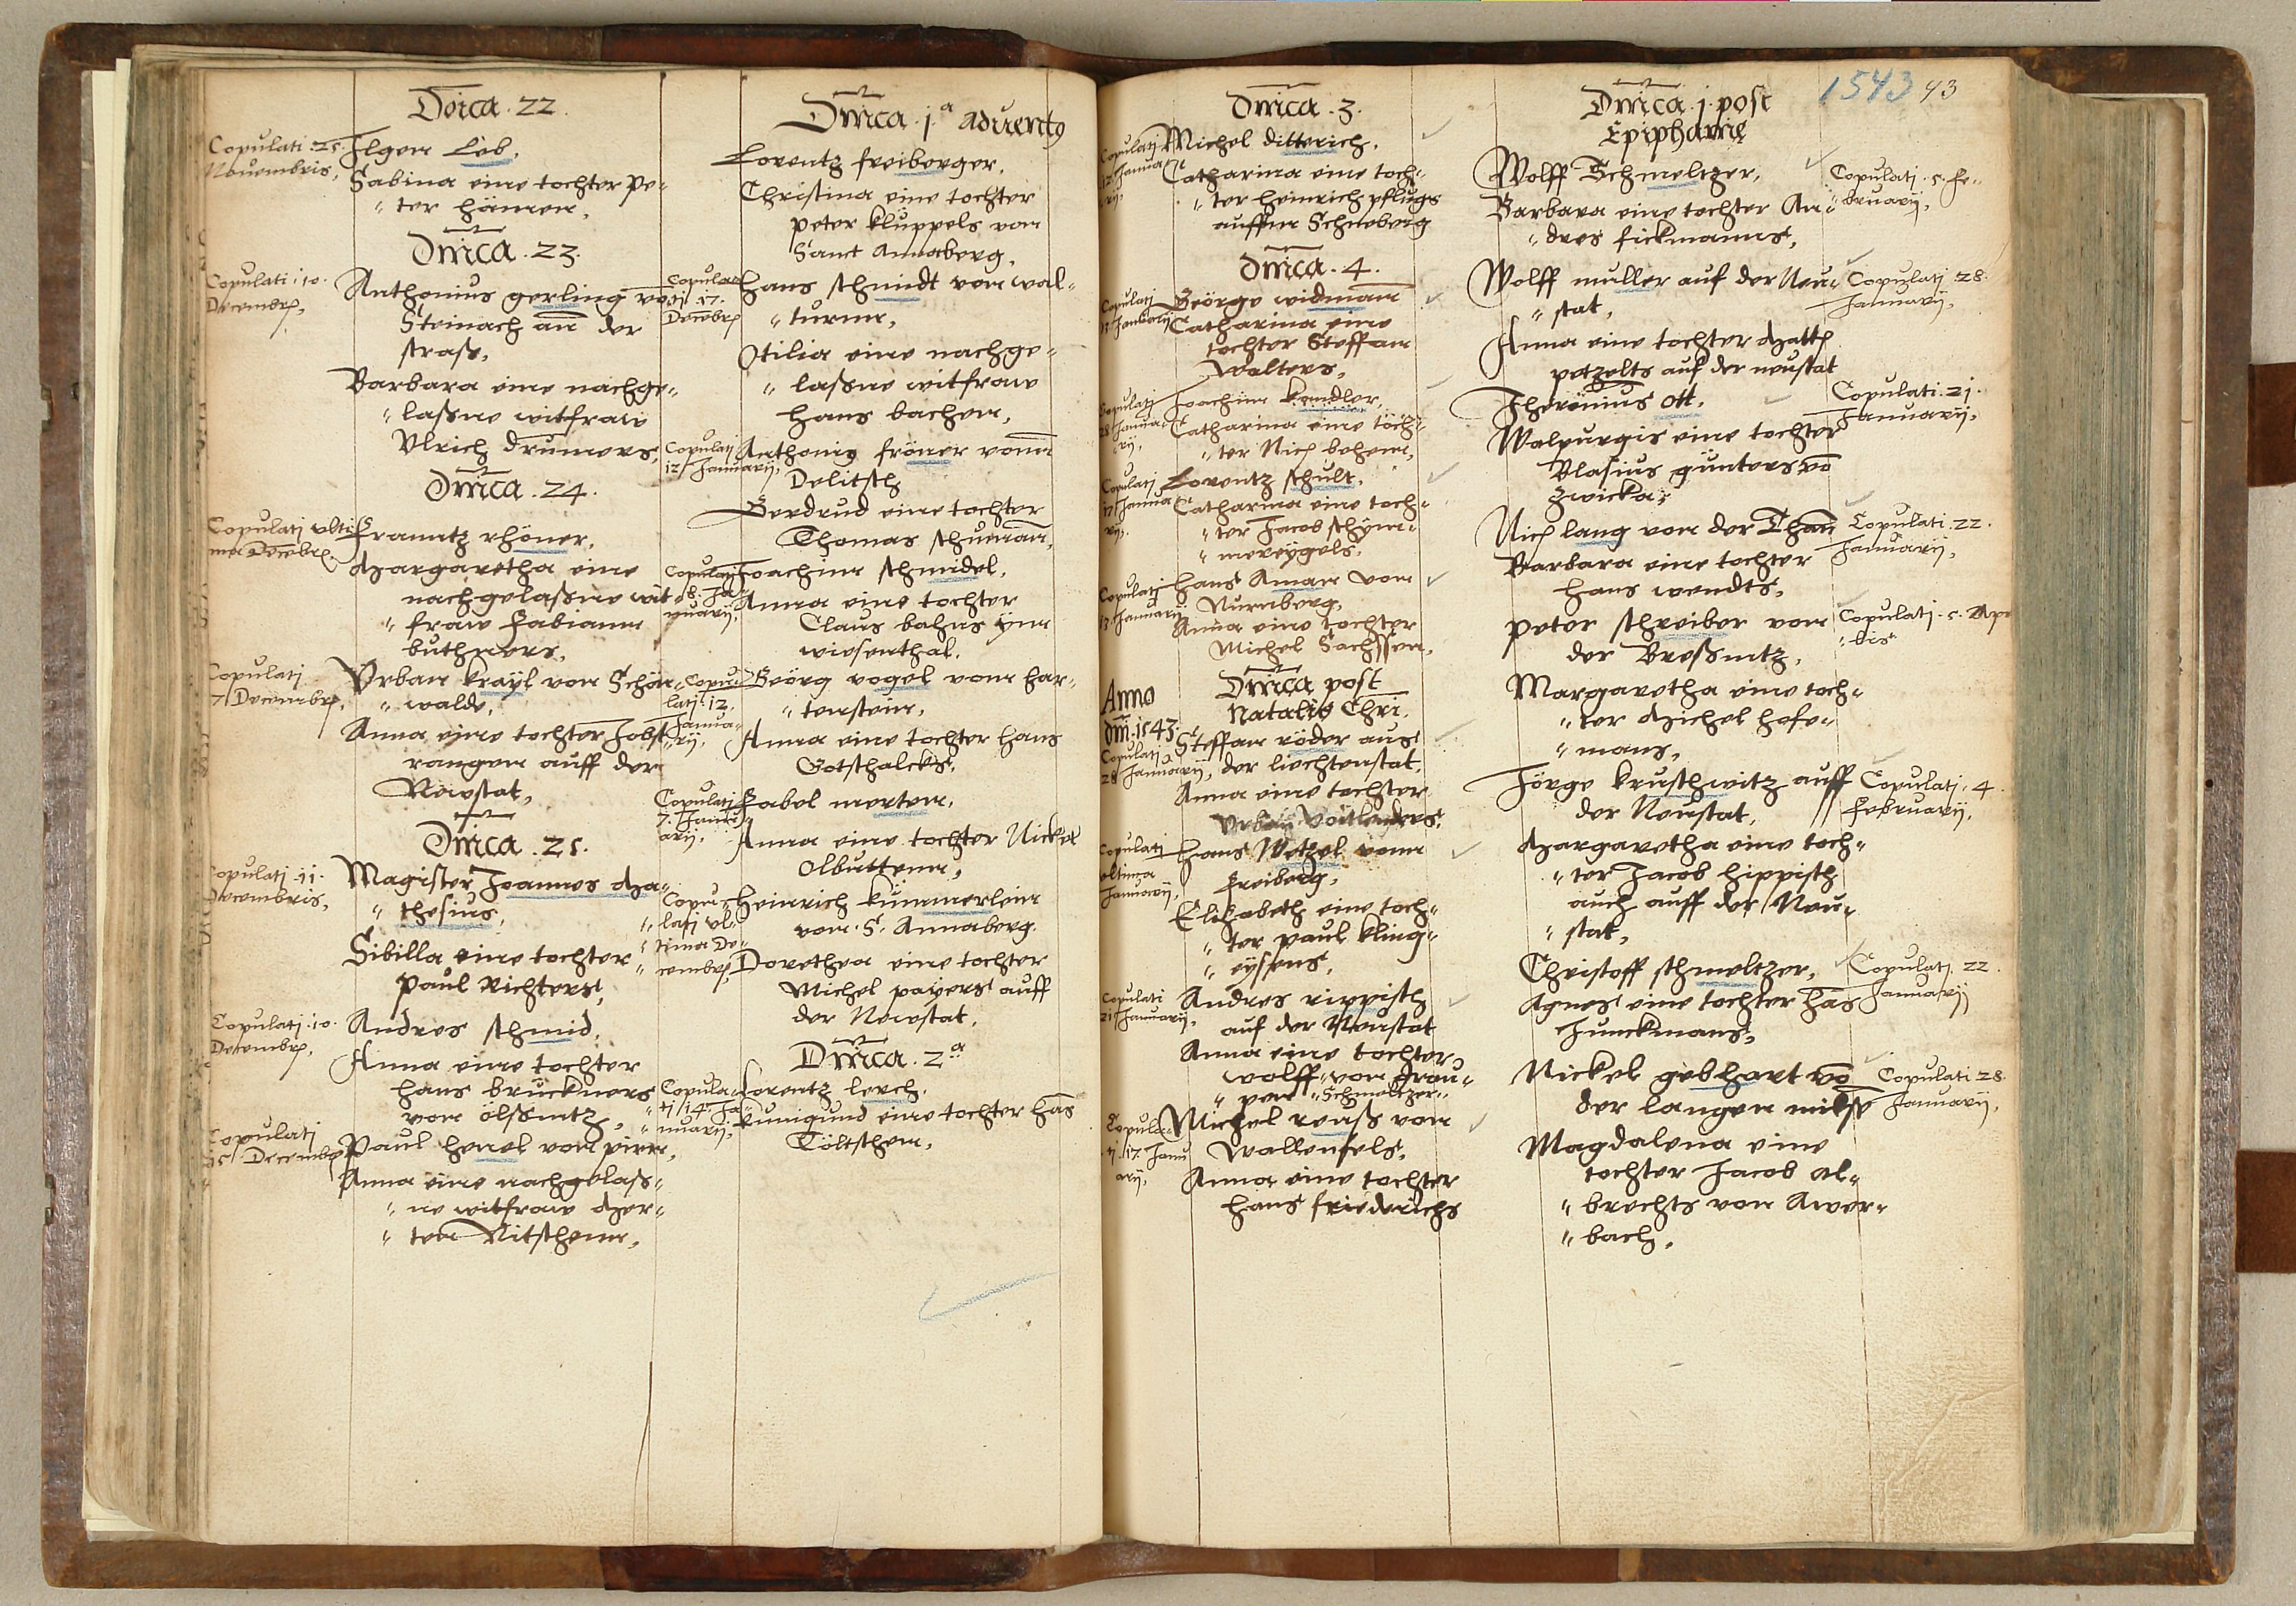 Doica . 22 .
Copulati . 25 .
Nouembris,
Ilgen Leb,
Sabina eine tochter Pe-
" ter hämen,
Dnica . 23 .
Copulati . 10 .
Decembr,
Anthonius gerling vo
Steinach an der
straß,
Barbara eine nachge-
" laßne witfraw
Vlrich drumers,
Dnica . 24 .
Copulatj vlti
ma Decebr.
Franntz rhöner,
Margaretha eine
nachgelaßne wit-
" fraw Fabiann
buthners,
Copulatj
7 Decembr,
Vrban krayl von Schön-
" walde,
Anna eine tochter Jobst
rangen auff der
Newstat,
Dnica . 25 .
Copulatj . 11 .
Decembris,
Magister Joannes Ma-
" thesius,
Sibilla eine tochter
Paul Richters,
Copulatj . 10 .
Decembr,
Andres schmid,
Anna eine tochter
hans bruckners
von ölßnitz,
Copulatj
5 Decembr
Paul henel von pirn,
Anna eine nachgelaß-
" ne witfraw Mer-
" ten Nitschenn,
Dnica . 1a aduentus
Lorentz freiberger,
Christina eine tochter
peter kluppels von
Sanct Annaberg,
Copula
tj 17 .
Decebr
hans schmidt von wal-
" turnn,
Otilia eine nachge-
" laßne witfraw
hans bachen,
Copulatj
12 Januarij,
Anthonius fröner vonn
Delitsch
Gerdrud eine tochter
Thomas schuman,
Copulatj
8. Ja
nuarij,
Joachim schmidel,
Anna eine tochter
Claus bahns ynn
wiesenthal,
Copu-
latj 12 .
Janua-
rij,
Georg vogel vonn har-
" tenstein,
Anna eine tochter hans
Gotschalcks,
Copulatj
7. Janu
arij,
Fabel merten,
Anna eine tochter Nickel
Olbuttenn,
Copu-
" latj vl-
" tima De-
" cembr,
Heinrich kümmerlein
von S. Annaberg.
Dorethea eine tochter
Michel payers auff
der Newstat,
Dnica . 2a
Copula-
" tj 14 Ja-
" nuarij,
Lorentz lerch,
kunigund eine tochter hans
Töltschen,
1543 43
Dnica . 3 .
Copulatj
12 Janua
rij,
Michel ditterich,
Catharina eine toch-
" ter heinrich pflugs
auffm Schneberg
Dnica . 4 .
Copulatj
13 Januarij
Geörge widmann
Catharina eine
tochter Steffan
Walters,
Copulatj
28 Janua-
rij,
Joachim kendler,
Catharina eine toch-
" ter Nic behem,
Copulatj
17 Janua
rij,
Lorentz schult,
Catharina eine toch-
" ter Jacob schym-
" mereygels,
Copulatj
17 Januarij
hans Aman von
Nurnberg,
Anna eine tochter
Michel Sachssen,
Anno
dm. 1543.
Dnica post
Natalis Chri.
Copulatj
28 Januarij,
Steffan röder aus
der liechtenstat,
Anna eine tochter
Vrban Voitlenders,
Copulatj
vltima
Januarij,
hans Wetzel vonn
freiberg,
Elizabeth eine toch-
" ter paul kling-
" eysens,
Copulati
21 Januarij,
Andres rippisch
auf der Neustat
Anna eine tochter
wolff von grau-
" pen Schmeltzer
Copula
tj 17 Janu
arij,
Michel reuß von
Wallenfels,
Anna eine tochter
hans friederichs
Dnica . 1 . post
Epiphanie
Wolff Schmeltzer,
Copulatj . 5 . Fe-
" bruarij,
Barbara eine tochter An-
" dres fickmanns,
Wolff muller auf der Neu-
" stat,
Copulatj . 28
Januarij,
Anna eine tochter Matth
petzolts auf der neustat
Jheronius ott,
Copulati . 21 .
Januarij,
Walpurgis eine tochter
Blasius günters vo
Zwicka,
Nic lang von der Than
Copulati . 22 .
Januarij,
Barbara eine tochter
hans wendts,
peter schreiber von
der Breßnitz,
Copulatj . 5 . Apr
" lis
Margaretha eine toch-
" ter Michel hefe-
" mans,
Jörge kruschwitz auff
der Neustat,
Copulatj . 4 .
februarij,
Margaretha eine toch-
" ter Jacob hippisch
auch auff der Neu-
" stat,
Christoff schmeltzer,
Copulatj . 22 .
Januarij
Agnes eine tochter hans
Junckmans,
Nickel gebhart vo
der langen milse
Copulati 28 .
Januarij,
Magdalena eine
tochter Jacob al-
" brechts von Awer-
" bach,